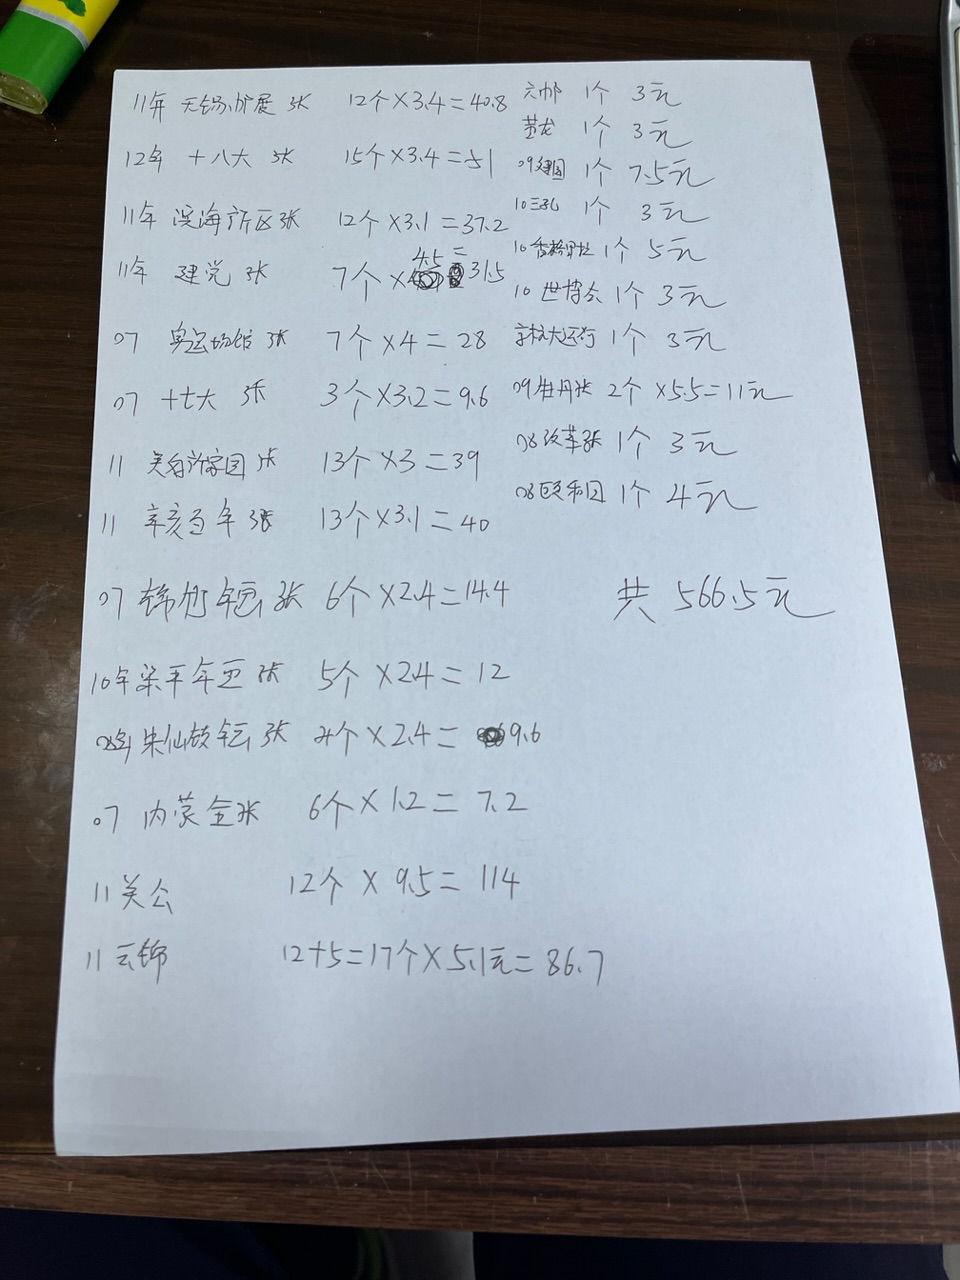 11年 无锡扩展 张 12个×3.4=40.8
12年 十八大 张 15个×3.4=51
11年 滨海新区张 12个×3.1=37.2
11年 建党 张 7个×4.5=31.5
07 奥运场馆 张 7个×4=28
07 十七大 张 3个×3.2=9.6
11 美好新家园 张 13个×3=39
11 辛亥百年 张 13个×3.1=40
07 绵竹年画 张 6个×2.4=14.4
10年梁平年画 张 5个×2.4=12
08年朱仙镇年画 张 4个×2.4=9.6
07 内蒙全张 6个×1.2=7.2
11 关公 12个×9.5=114
11 云锦 12+5=17个×5.1元=86.7
1个 3元
1个 3元
09建国 1个 7.5元
10三孔 1个 3元
10香格里拉 1个 5元
10世博会 1个 3元
大运河 1个 3元
09牡丹张 2个×5.5=11元
08改革张 1个 3元
08颐和园 1个 4元
共 566.5元